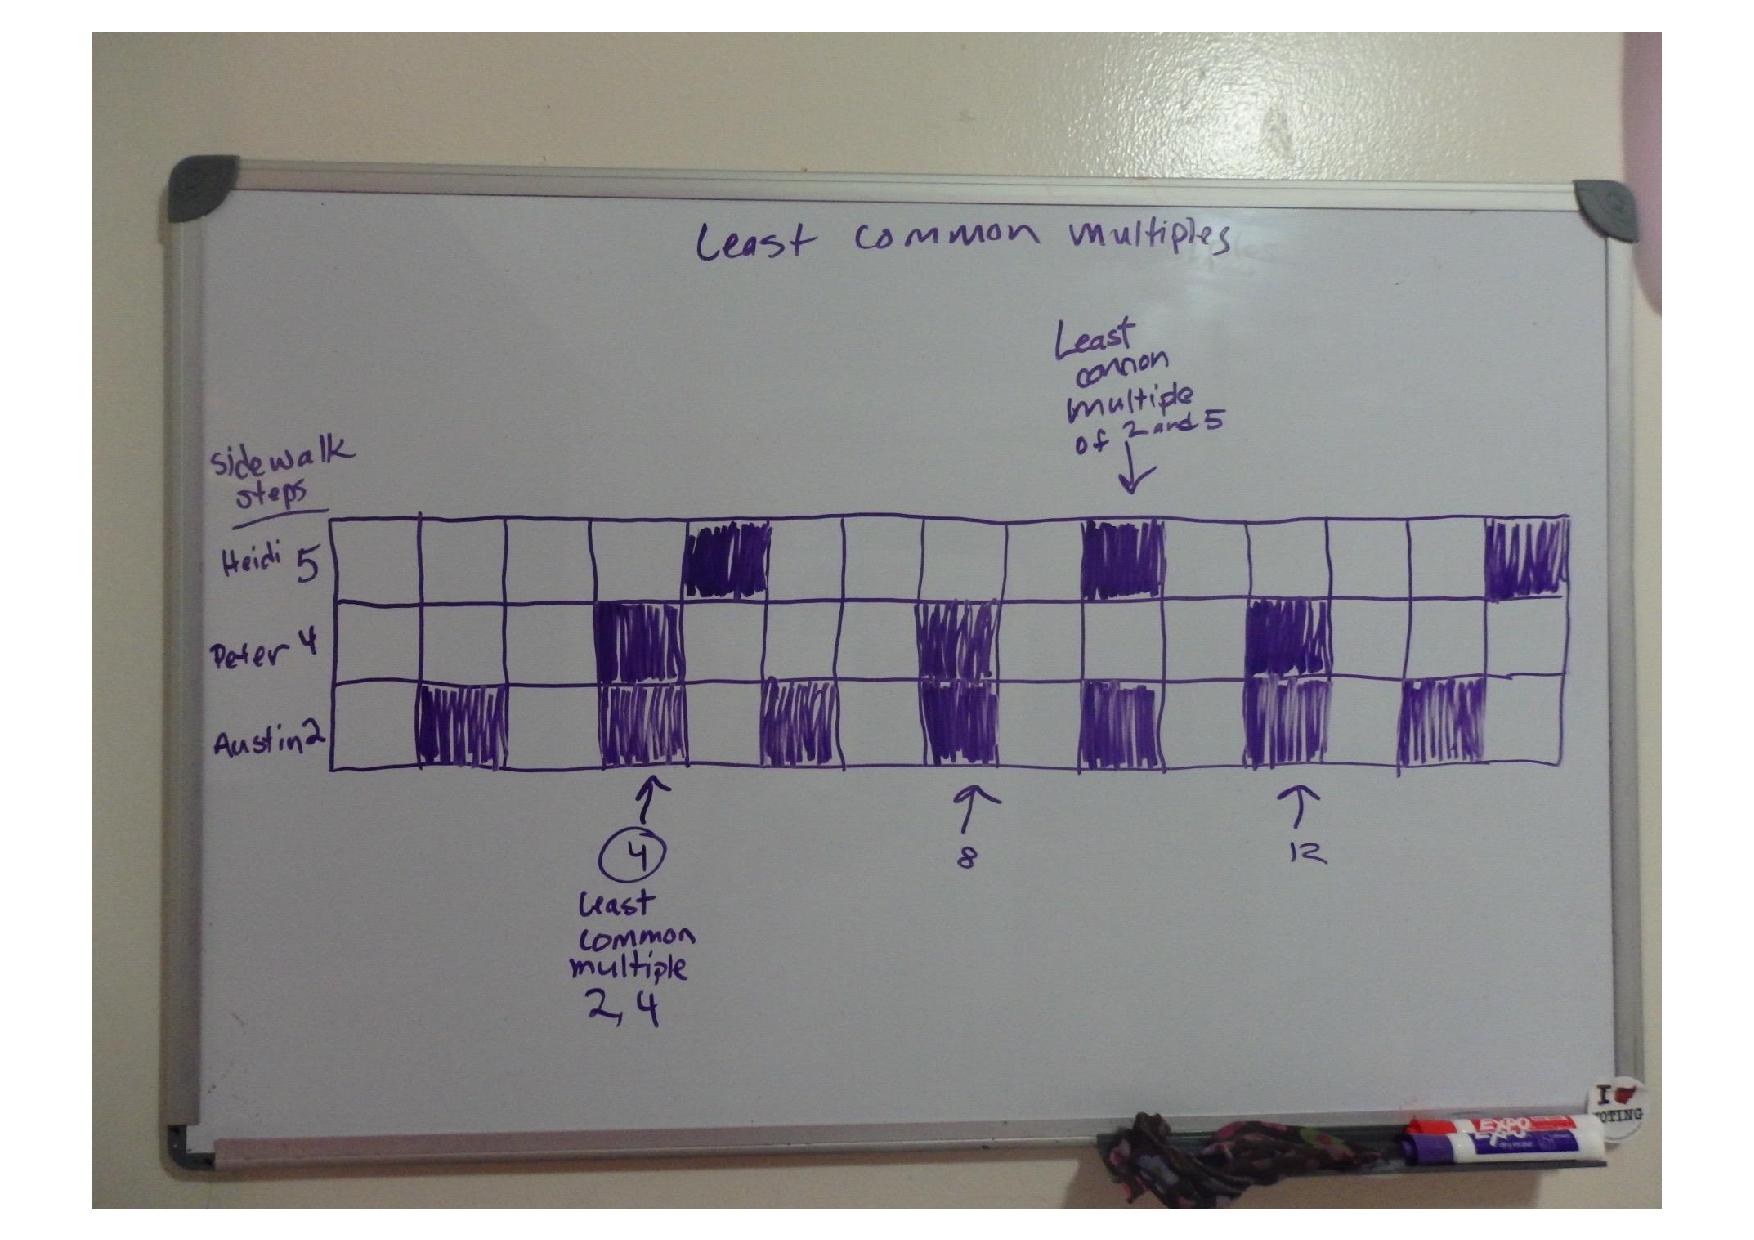 Least common multiples
Least
common
multiple
of 2 and 5
sidewalk
steps
Heidi 5
Peter 4
Austin 2
4
8
12
Least
common
multiple
2, 4
I
VOTING
EXPO
EXPO